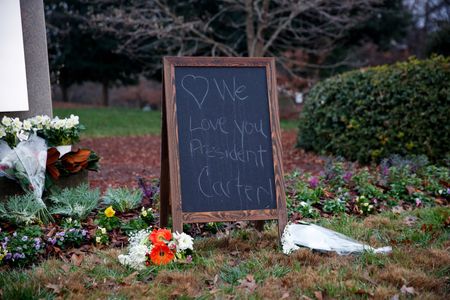 ♡ We
Love you
President
Carter